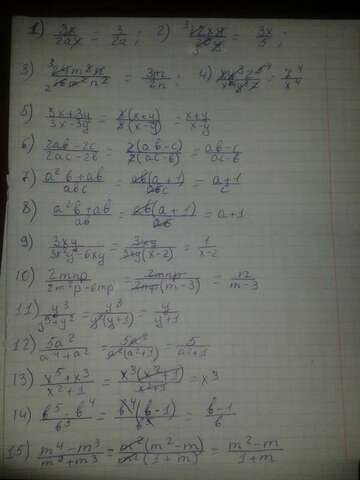 1) 3x/2ax = 3/2a ; 2) = 3x/5 ;
3) = 3m/2n ; 4) = z⁴/x⁴
5) 3x+3y/3x-3y = 3(x+y)/3(x-y) = x+y/x-y
6) 2ab-2c/2ac-2b = 2(ab-c)/2(ac-b) = ab-c/ac-b
7) a²b+ab/abc = ab(a+1)/abc = a+1/c
8) a²b+ab/ab = ab(a+1)/ab = a+1
9) 3xy/3x²y-6xy = 3xy/3xy(x-2) = 1/x-2
10) 2mnp/2m²p-6mp = 2mnp/2mp(m-3) = n/m-3
11) y³/y³+y² = y³/y²(y+1) = y/y+1
12) 5a²/a⁴+a² = 5a²/a²(a²+1) = 5/a²+1
13) x⁵+x³/x²+1 = x³(x²+1)/x²+1 = x³
14) b⁵-b⁴/b⁵ = b⁴(b-1)/b⁵ = b-1/b
15) = m²(m²-m)/m²(1+m) = m²-m/1+m